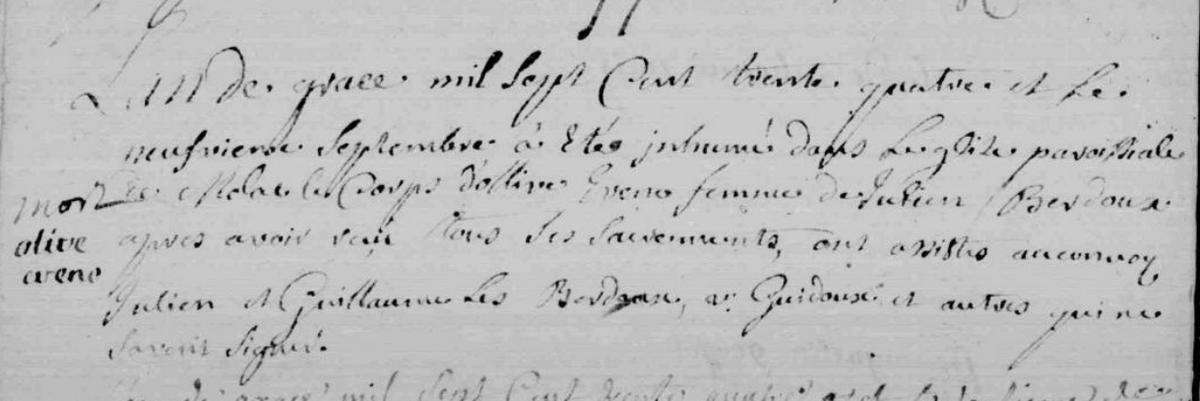 Lan de grace mil sept Cent trente quatre et Le
neufvieme Septembre à Etée inhumé dans Leglise paroissiale
de le Corps d'ollive Eveno femme de Julien Berdoux
mort
olive
eveno
apres avoir reçu tous ses sacrements, ont assistes auconvoy
Julien et Guillaume Les Berdoux, et autres qui ne
savent signer.
de grace mil sept Cent trente quatre et le